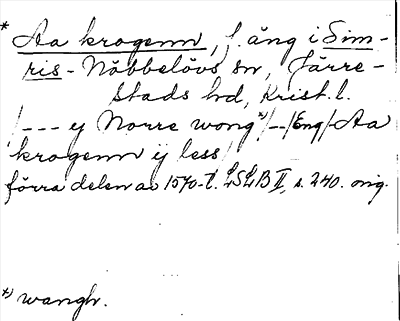 * Aa krogenn, f. äng i Sim-
ris-Nöbbelövs sn, Järre-
stads hd, Krist. l.
/--- ej Norre wong*)/--/Eng/Aa
krogenn ij less/
förra delen av 1570-t. LSLB II, s. 240. orig.
*) wangh.